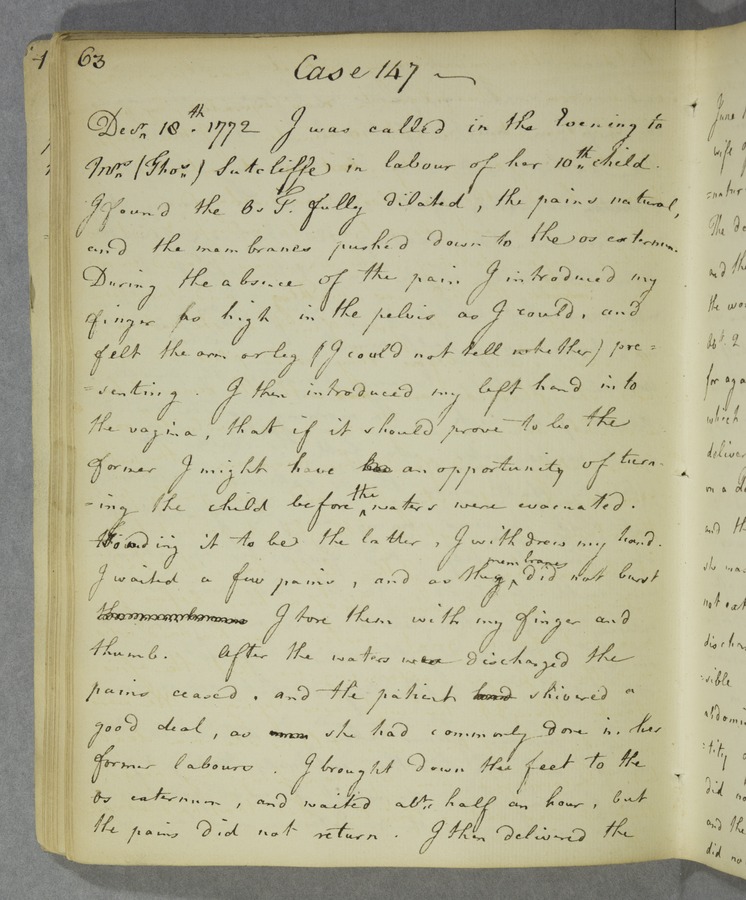 63
Case 147
Decr. 18th. 1772 I was called in the Evening to
Mrs. (Thos.) Sutcliffe in labour of her 10th. child.
I found the Os T. fully dilated, the pains natural,
and the membranes pushed down to the os externum.
During the absence of the pain I introduced my
finger as high in the pelvis as I could, and
felt the arm or leg (I could not tell whether) pre=
=senting. I then introduced my left hand into
the vagina, that if it should prove to be the
former I might have an opportunity of turn-
-ing the child before the waters were evacuated.
finding it to be the latter, I withdrew my hand.
I waited a few pains, and as the membranes did not burst
I tore them with my finger and
thumb. After the waters were discharged the
pains ceased, and the patient shivered a
good deal, as she had commonly done in her
former labours. I brought down the feet to the
os externum, and waited abt. half an hour, but
the pains did not return. I then delivered the